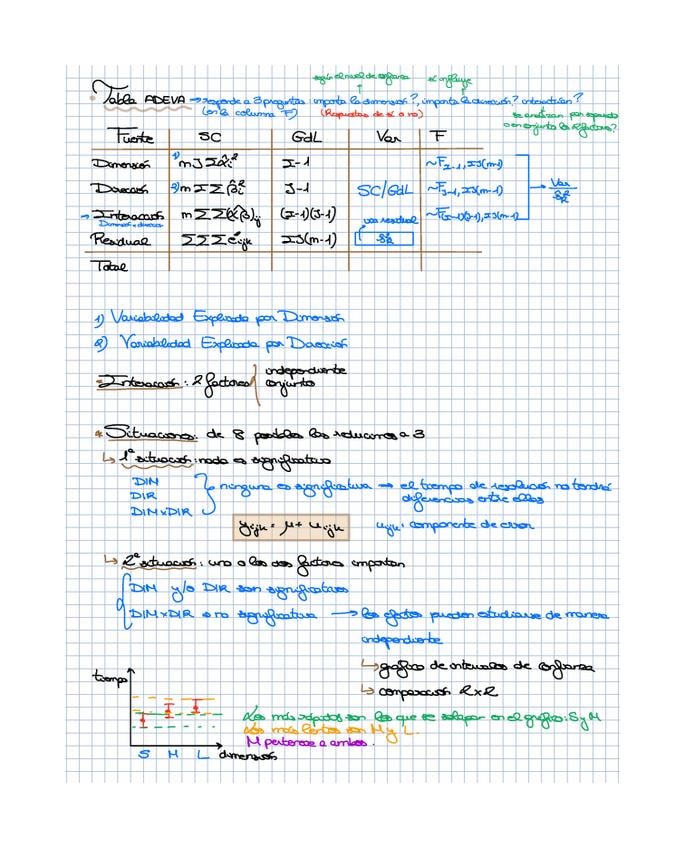 según el nivel de confianza
sí influye
Tabla ADEVA → responde a 3 preguntas: importa la dimensión?, importa la dirección?, interactúan?
(en la columna F) (Respuestas de sí o no)
se analizan por separado
o en conjunto los factores?
Fuente SC GdL Var F
Dimensión 1) mJΣα̂i² I-1 ~F I-1, IJ(m-1)
Dirección 2) mIΣβ̂j² J-1 SC/GdL ~F J-1, IJ(m-1) → Var/ŝR²
→ Interacción mΣΣ(α̂β)ij (I-1)(J-1) ~F(I-1)(J-1), IJ(m-1)
Dimensión x dirección
var residual
Residual ΣΣΣ e²ijk IJ(m-1) ŝR²
Total
1) Variabilidad Explicada por Dimensión
2) Variabilidad Explicada por Dirección
- Interacción: 2 factores independiente
conjunto
* Situaciones: de 8 posibles las reducimos a 3
↳ 1ª situación: nada es significativo
DIM
DIR
DIMxDIR
ninguna es significativa → el tiempo de resolución no tendrá
diferencias entre ellas
yijk = μ + uijk uijk: componente de error
↳ 2ª situación: uno o los dos factores importan
DIM y/o DIR son significativos
DIMxDIR no significativa → los efectos pueden estudiarse de manera
independiente
↳ gráfico de intervalos de confianza
↳ comparación 2x2
tiempo
Los más rápidos son los que se solapan en el gráfico: S y M
Los más lentos son M y L.
M pertenece a ambos.
S M L dimensión